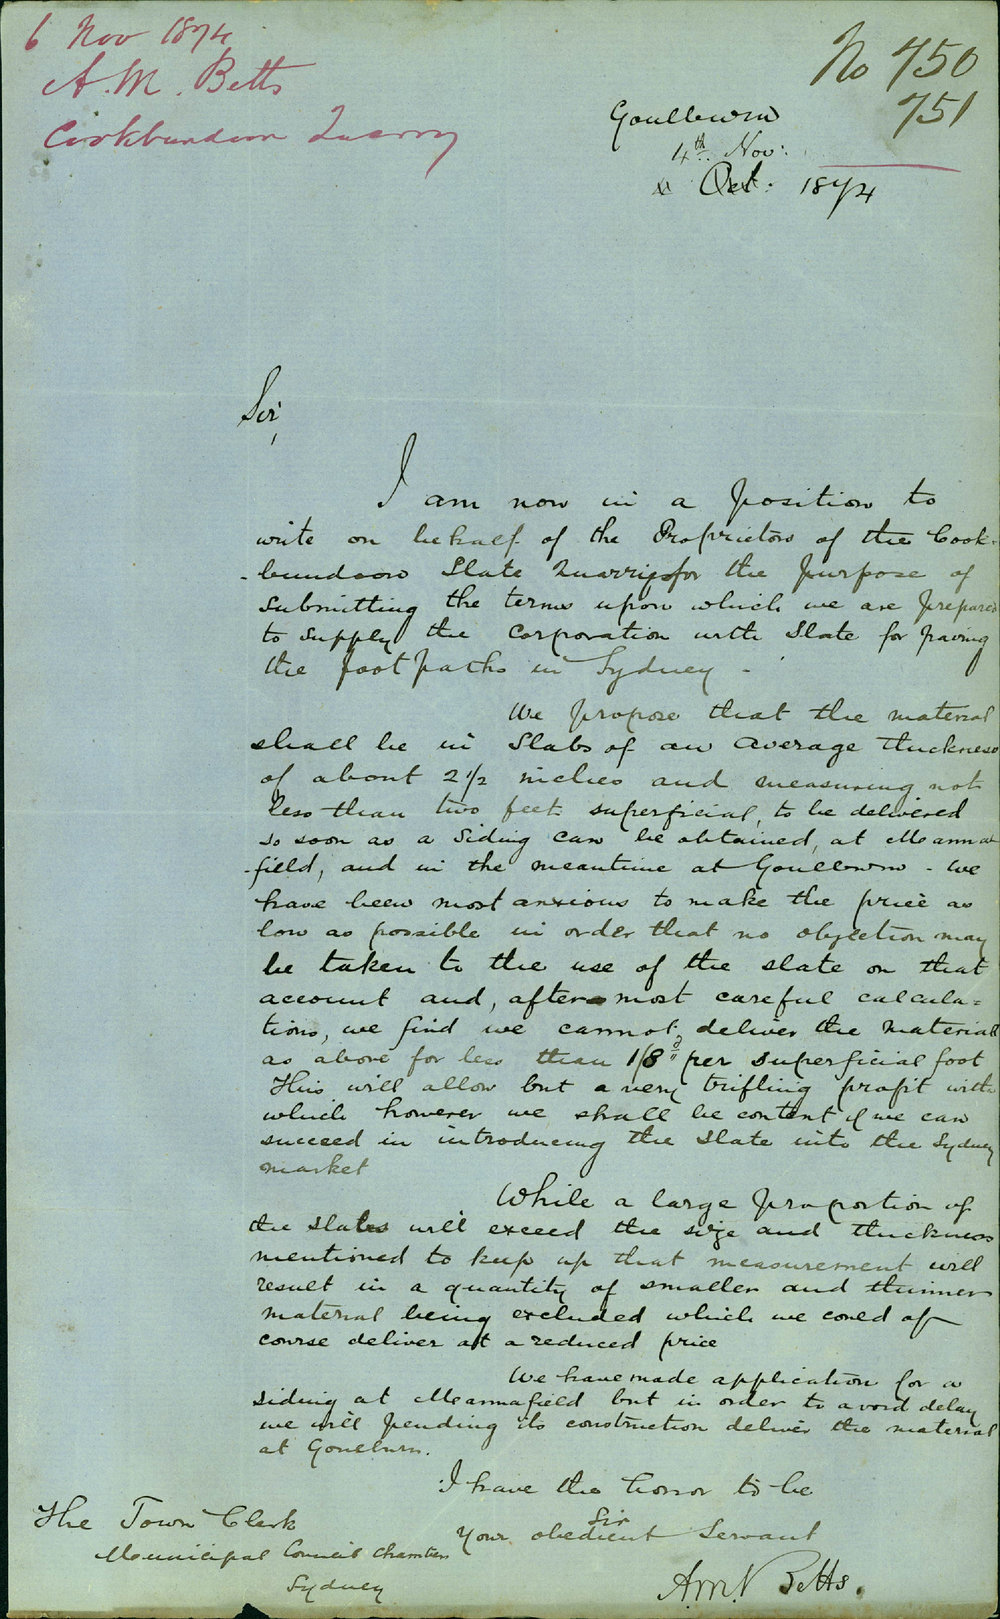 6 Nov 1874
A. M. Betts
Cookbundoon Quarry
No 750
751
Goulburn
4th Nov:
Oct. 1874
Sir,
I am now in a position to
write on behalf of the Proprietors of the Cook-
-bundoon Slate Quarries for the purpose of
submitting the terms upon which we are prepared
to supply the Corporation with Slate for paving
the footpaths in Sydney -
We propose that the material
shall be in Slabs of an average thickness
of about 2 1/2 inches and measuring not
less than two feet superficial, to be delivered
so soon as a Siding can be obtained, at Mearma
-field, and in the meantime at Goulburn - We
have been most anxious to make the price as
low as possible in order that no objection may
be taken to the use of the slate on that
account and, after most careful calcula=
tions, we find we cannot deliver the material
as above for less than 1/8 per superficial foot
This will allow but a very trifling profit with
which however we shall be content if we can
succeed in introducing the Slate into the Sydney
market
While a large proportion of
the slabs will exceed the size and thickness
mentioned to keep up that measurement will
result in a quantity of smaller and thinner
material being excluded which we could of
course deliver at a reduced price
We have made application for a
siding at Mearmafield but in order to avoid delay
we will pending its construction deliver the material
at Goulburn.
I have the honor to be
Sir
Your obedient Servant
A. M. Betts.
The Town Clerk
Municipal Council Chambers
Sydney